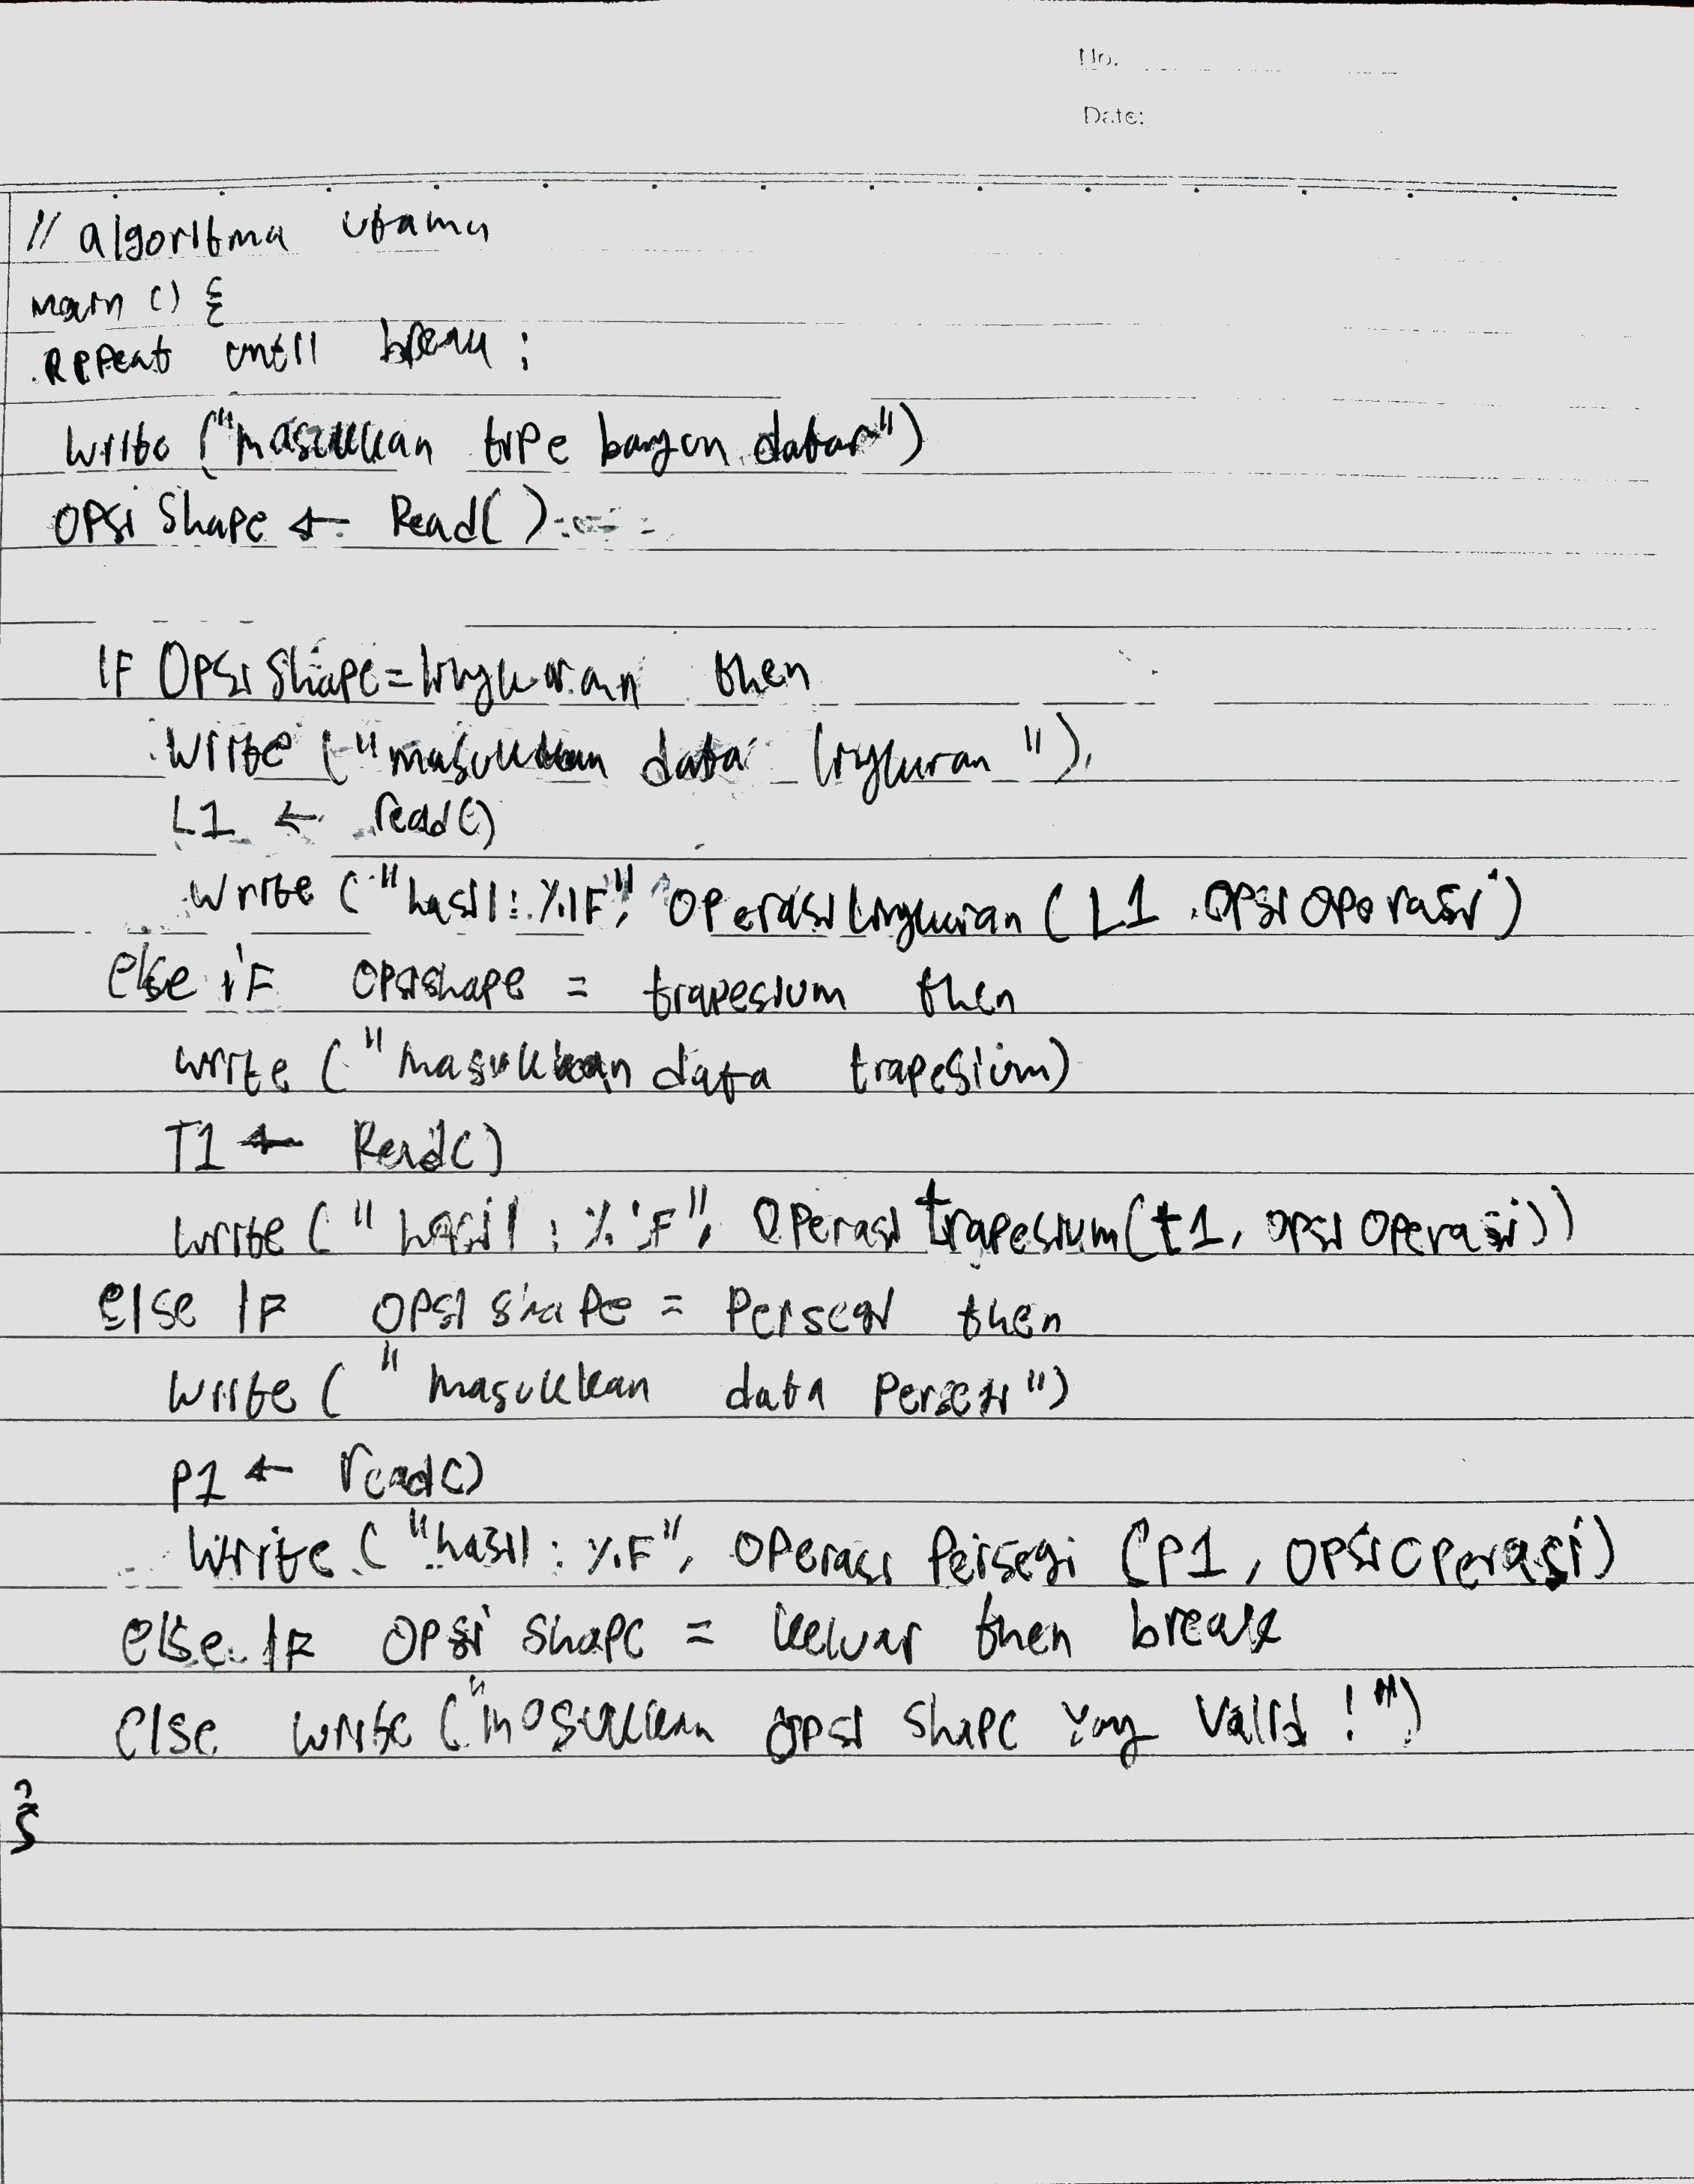 No.
Date:
// algoritma utama
main () {
Repeat until break :
write ("masukkan tipe bangun datar")
Opsi Shape ← Read()
IF Opsi Shape = lingkaran then
Write ("masukkan data lingkaran")
L1 ← read()
Write ("hasil : %lF", Operasi lingkaran (L1 , Opsi Operasi)
else iF opsishape = trapesium then
write ("masukkan data trapesium)
T1 ← Read()
write ("hasil : %lF", Operasi trapesium(t1, opsi Operasi))
else IF opsi shape = Persegi then
write ("masukkan data Persegi")
P1 ← read()
Write ("hasil : %lF", Operasi Persegi (P1, Opsi Operasi)
else IF Opsi shape = keluar then break
else write ("masukkan opsi shape yang valid !")
}